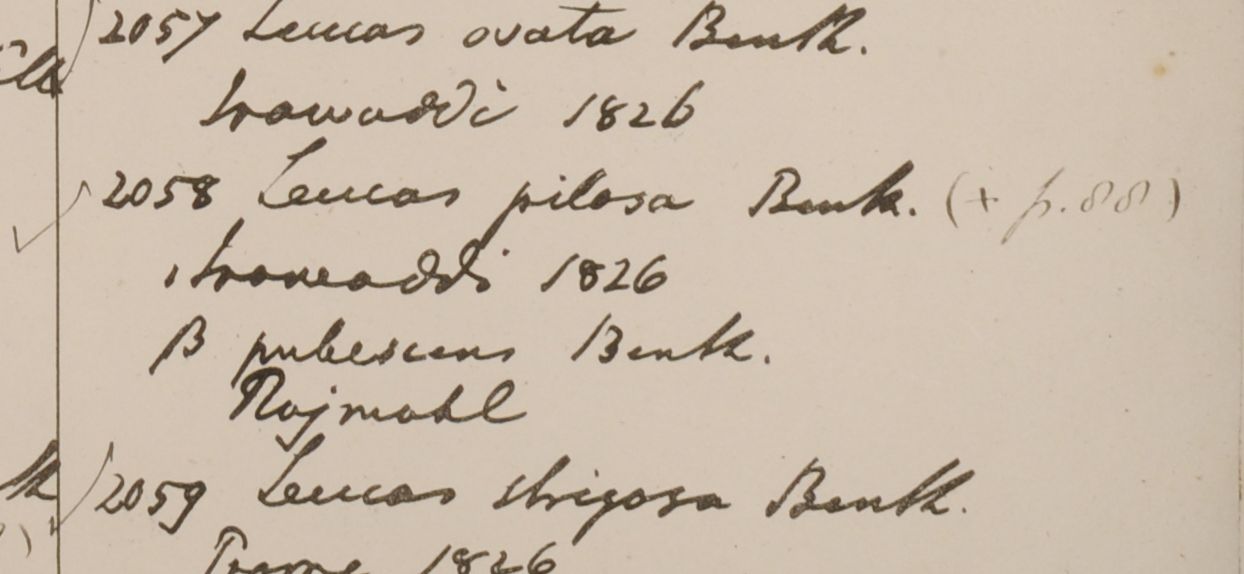 2057 Leucas ovata Benth.
Irawaddi 1826
2058 Leucas pilosa Benth. (+ p. 88)
Irawaddi 1826
β pubescens Benth.
Rajmahl
2059 Leucas strigosa Benth.
Prome 1826